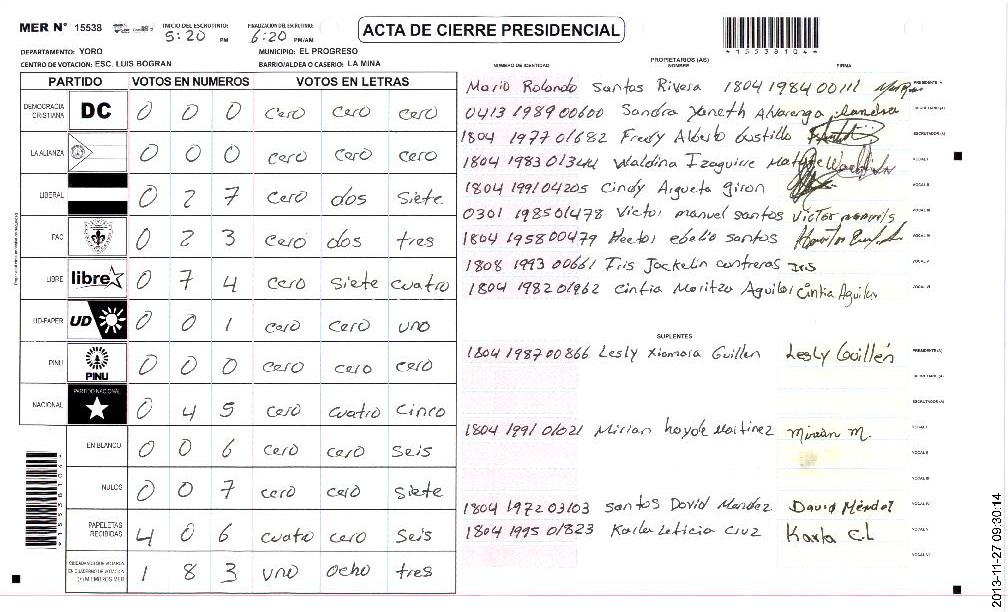 MER Nº 15538
INICIO DEL ESCRUTINIO: 5:20 PM
FINALIZACION DEL ESCRUTINIO: 6:20 PM/AM
ACTA DE CIERRE PRESIDENCIAL
*15538104*
DEPARTAMENTO: YORO
MUNICIPIO: EL PROGRESO
CENTRO DE VOTACION: ESC. LUIS BOGRAN
BARRIO/ALDEA O CASERIO: LA MINA
PARTIDO VOTOS EN NUMEROS VOTOS EN LETRAS
DEMOCRACIA CRISTIANA DC 0 0 0 cero cero cero
LA ALIANZA 0 0 0 cero cero cero
LIBERAL 0 2 7 cero dos siete
PAC 0 2 3 cero dos tres
LIBRE libre 0 7 4 cero siete cuatro
UD-FAPER UD 0 0 1 cero cero uno
PINU PINU 0 0 0 cero cero cero
NACIONAL PARTIDO NACIONAL 0 4 5 cero cuatro cinco
EN BLANCO 0 0 6 cero cero seis
NULOS 0 0 7 cero cero siete
PAPELETAS RECIBIDAS 4 0 6 cuatro cero seis
CIUDADANOS QUE VOTARON EN CUADERNO DE VOTACION (+) MIEMBROS MER 1 8 3 uno ocho tres
*15538104*
PROPIETARIOS (AS)
NUMERO DE IDENTIDAD NOMBRE FIRMA
Mario Rolando Santos Rivera 1804 1984 00111 PRESIDENTE (A)
0413 1989 00600 Sandra Yaneth Alvarenga Sandra SECRETARIO (A)
1804 1977 01682 Fredy Alberto Custillo ESCRUTADOR (A)
1804 1983 Waldina Izaguirre VOCAL I
1804 1991 04205 Cindy Argueta Giron VOCAL II
0301 1985 01478 Victor manuel santos Victor VOCAL III
1804 1958 00479 Hector ebelio santos VOCAL IV
1808 1993 00661 Iris Jackelin contreras Iris VOCAL V
1804 1982 01962 Cintia Maritza Aguilar Cintia Aguilar VOCAL VI
SUPLENTES
1804 1987 00866 Lesly Xiomara Guillen Lesly Guillén PRESIDENTE (A)
SECRETARIO (A)
ESCRUTADOR (A)
1804 1991 01021 Mirian Martinez Mirian M. VOCAL I
VOCAL II
VOCAL III
1804 1972 03103 Santos David Mendez David Méndez VOCAL IV
1804 1995 01823 Karla Leticia Cruz Karla C.L VOCAL V
VOCAL VI
2013-11-27 09:30:14